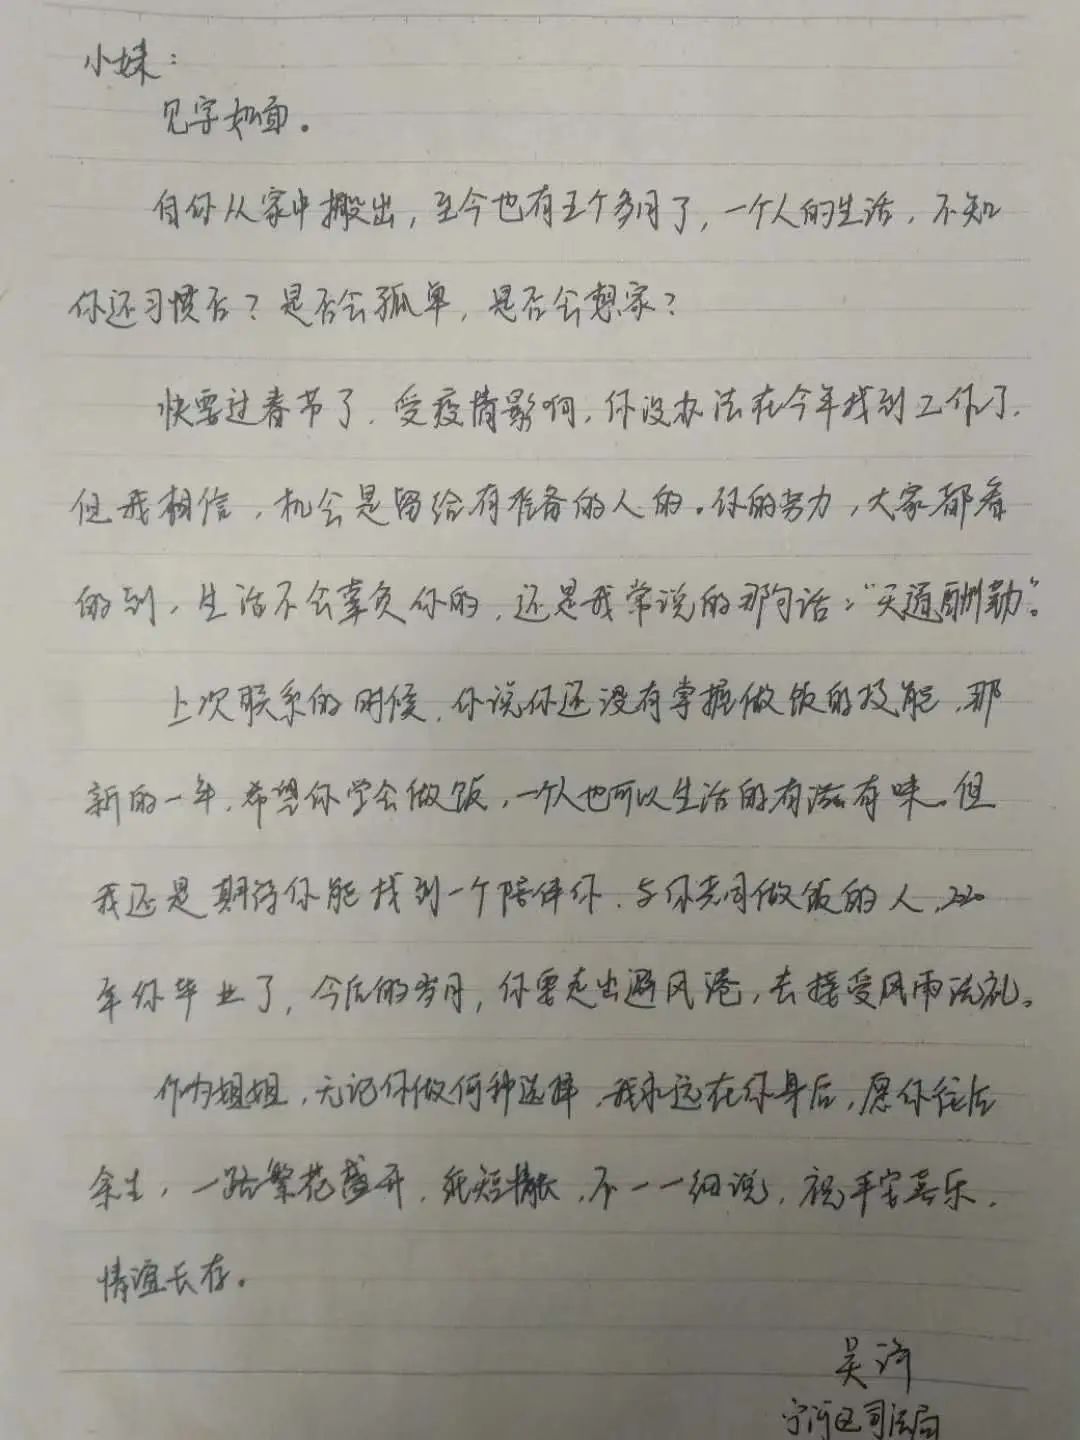 小妹：
见字如面。
自你从家中搬出，至今也有五个多月了，一个人的生活，不知
你还习惯否？是否会孤单，是否会想家？
快要过春节了，受疫情影响，你没办法在今年找到工作了，
但我相信，机会是留给有准备的人的。你的努力，大家都看
的到，生活不会辜负你的，还是我常说的那句话："天道酬勤"。
上次联系的时候，你说你还没有掌握做饭的技能，那
新的一年，希望你学会做饭，一个人也可以生活的有滋有味。但
我还是期待你能找到一个陪伴你，与你共同做饭的人，2020
年你毕业了，今后的岁月，你要走出避风港，去接受风雨洗礼。
作为姐姐，无论你做何种选择，我永远在你身后，愿你往后
余生，一路繁花盛开，纸短情长，不一一细说，祝平安喜乐，
情谊长存。
吴
宁河区司法局